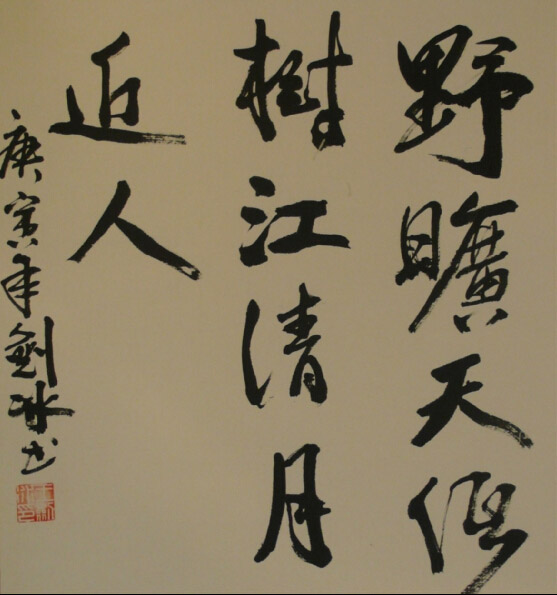 野曠天低
樹江清月
近人
庚寅年劍冰书